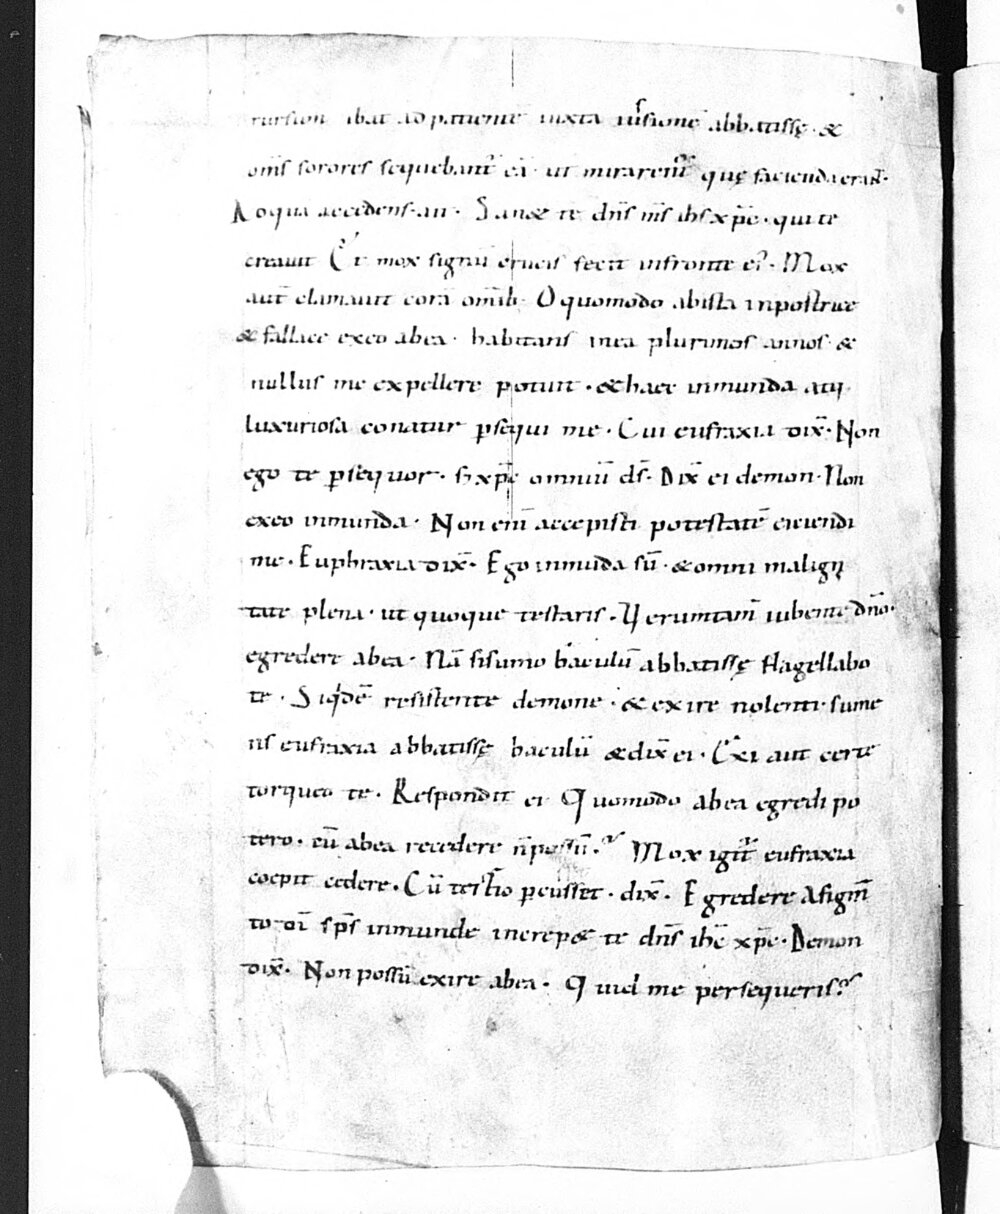 rursum ibat ad patiente iuxta iussionē abbatissę · &
om̄s sorores sequebant᷑ eā · ut mirarent᷑ quę facienda erant·
A qua accedens · ait · Sanæ te dn̄s m̄s ihs xp̄c · qui te
creauit Et mox signū crucis fecit infronte ei᷑ · Mox
aut̄ clamauit corā omīb· O quomodo abista inpostrice
& fallace exeo abea · habitans inea plurimos annos · &
nullus me expellere potuit · & haec inmunda atq;
luxuriosa conatur ꝑsequi me · Cui eufraxia dix̄ · Non
ego te ꝑsequor · s; xp̄c omniū ds̄ · Dix̄ ei demon · Non
exeo inmunda · Non enī accepisti potestatē eiciendi
me · Euphraxia dix̄ · Ego inmūda sū · & omni maligni
tate plena · ut quoque testaris · Uerumtam̄ iubente dn̄o ·
egredere abea · Nā si sumo baculū abbatissę flagellabo
te · Siqdē resistente demone · & exire nolenti · sume
ns eufraxia abbatissę baculū & dix̄ ei · Exi aut certe
torqueo te · Respondit ei Quomodo abea egredi po
tero · cū abea recedere n̄ possū · Mox igit᷑ eufraxia
coepit cedere · Cū tertio ꝑcusset · dix̄ · Egredere A figm̄
to dī sp̄s inmunde increpæ te dn̄s ihc̄ xp̄c · Demon
dix̄ · Non possū exire abea · Quid me persequeris?